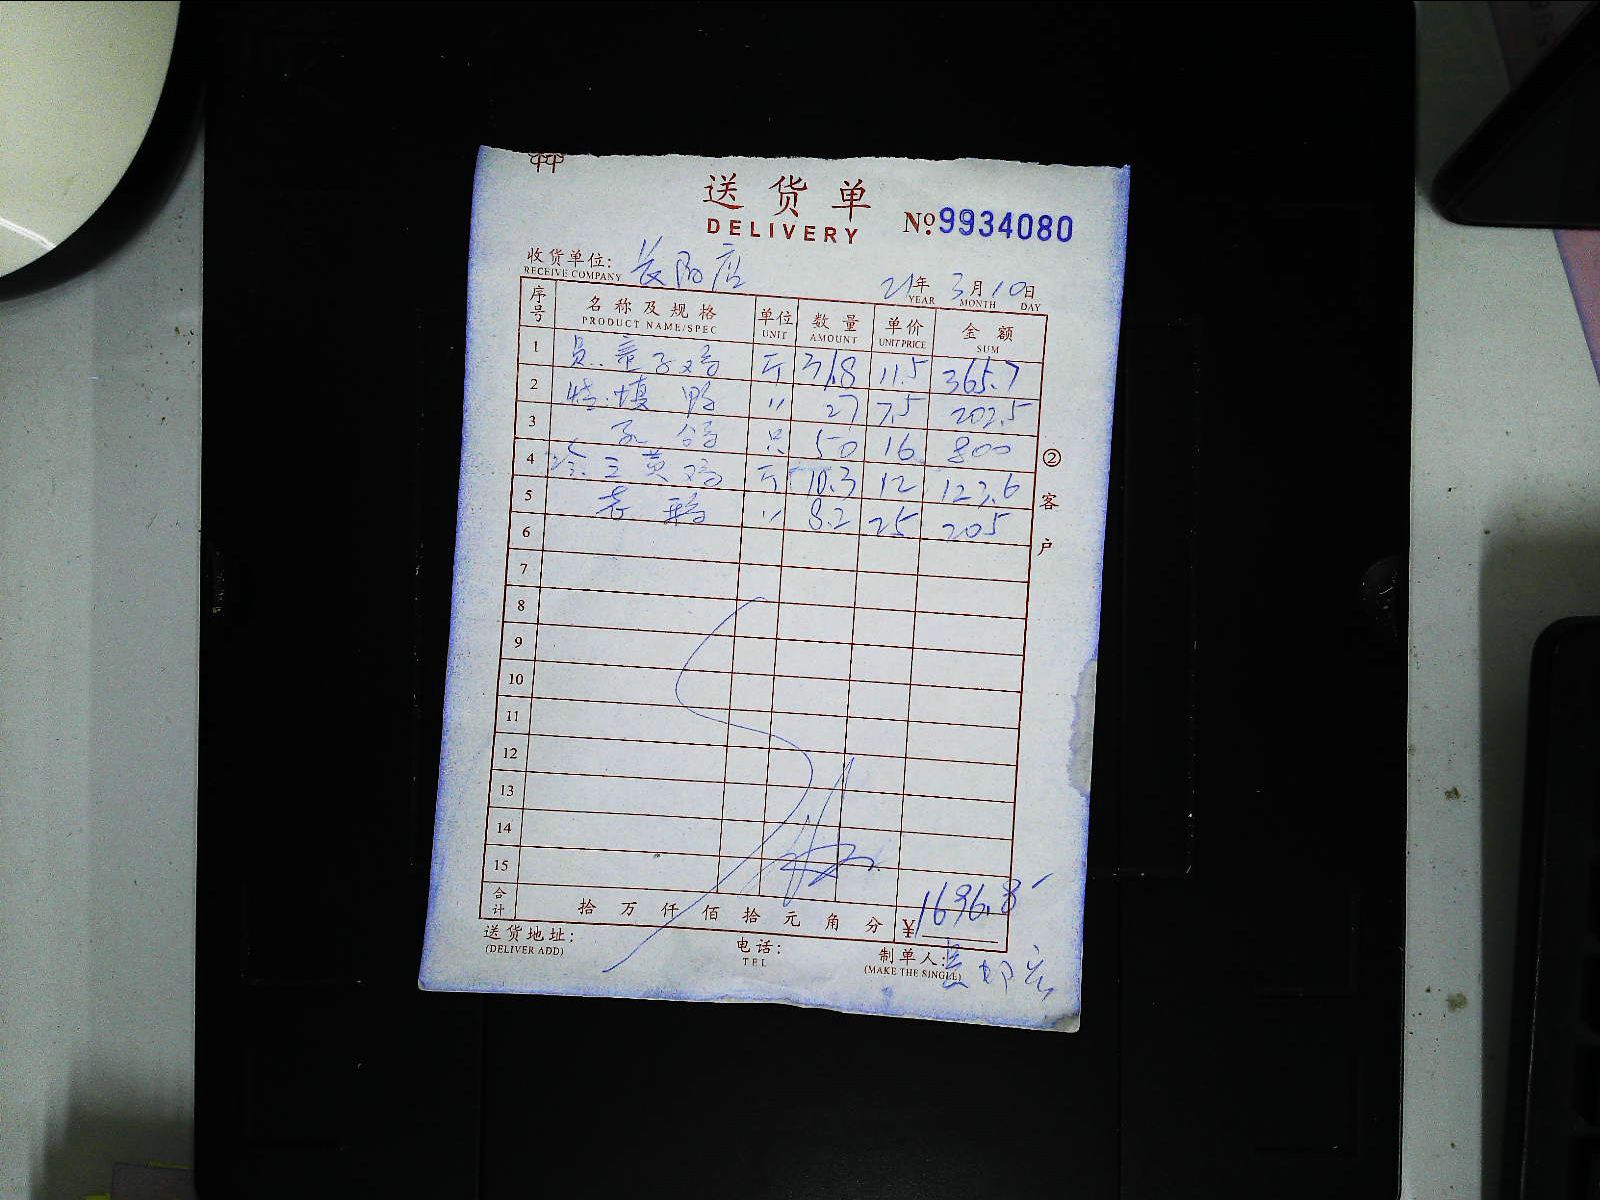 送货单
DELIVERY
No.9934080
收货单位: 长阳店
RECEIVE COMPANY
21年 3月 10日
YEAR MONTH DAY
序号 名称及规格 单位 数量 单价 金额
PRODUCT NAME/SPEC UNIT AMOUNT UNIT PRICE SUM
1 童子鸡 斤 31.8 11.5 365.7
2 填鸭 〃 27 7.5 202.5
3 乳鸽 只 50 16 800
4 三黄鸡 斤 10.3 12 123.6
5 老鹅 〃 8.2 25 205
6
7
8
9
10
11
12
13
14
15
②客户
合计 拾 万 仟 佰 拾 元 角 分 ¥1696.8
送货地址: 电话: 制单人:
(DELIVER ADD) TEL (MAKE THE SINGLE)